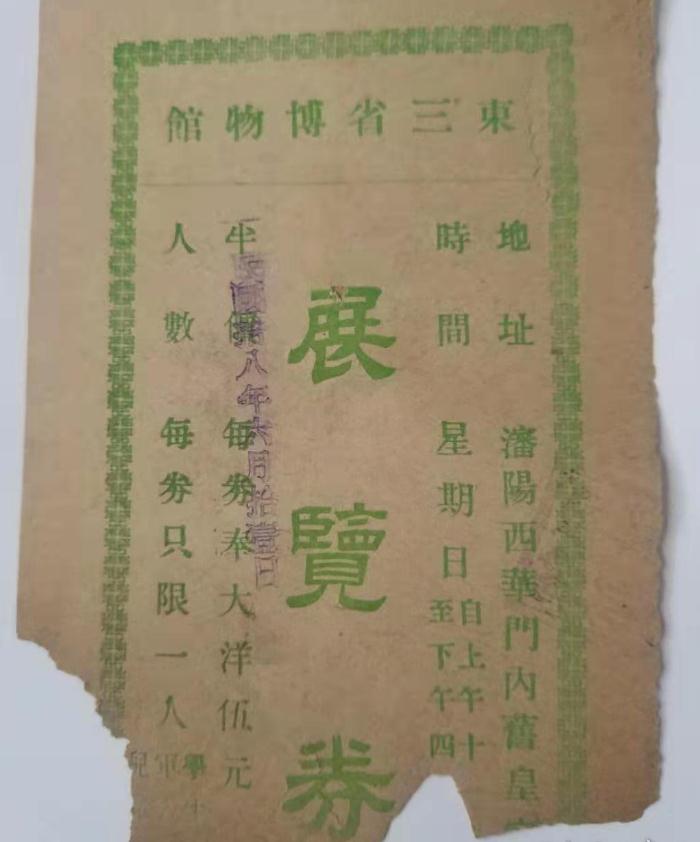 東三省博物館
地址 瀋陽西華門內舊皇
時間 星期日 自上午十
至下午四
展覽券
半價 每券奉大洋伍元
八年六月拾壹日
人數 每券只限一人
學
軍
兒